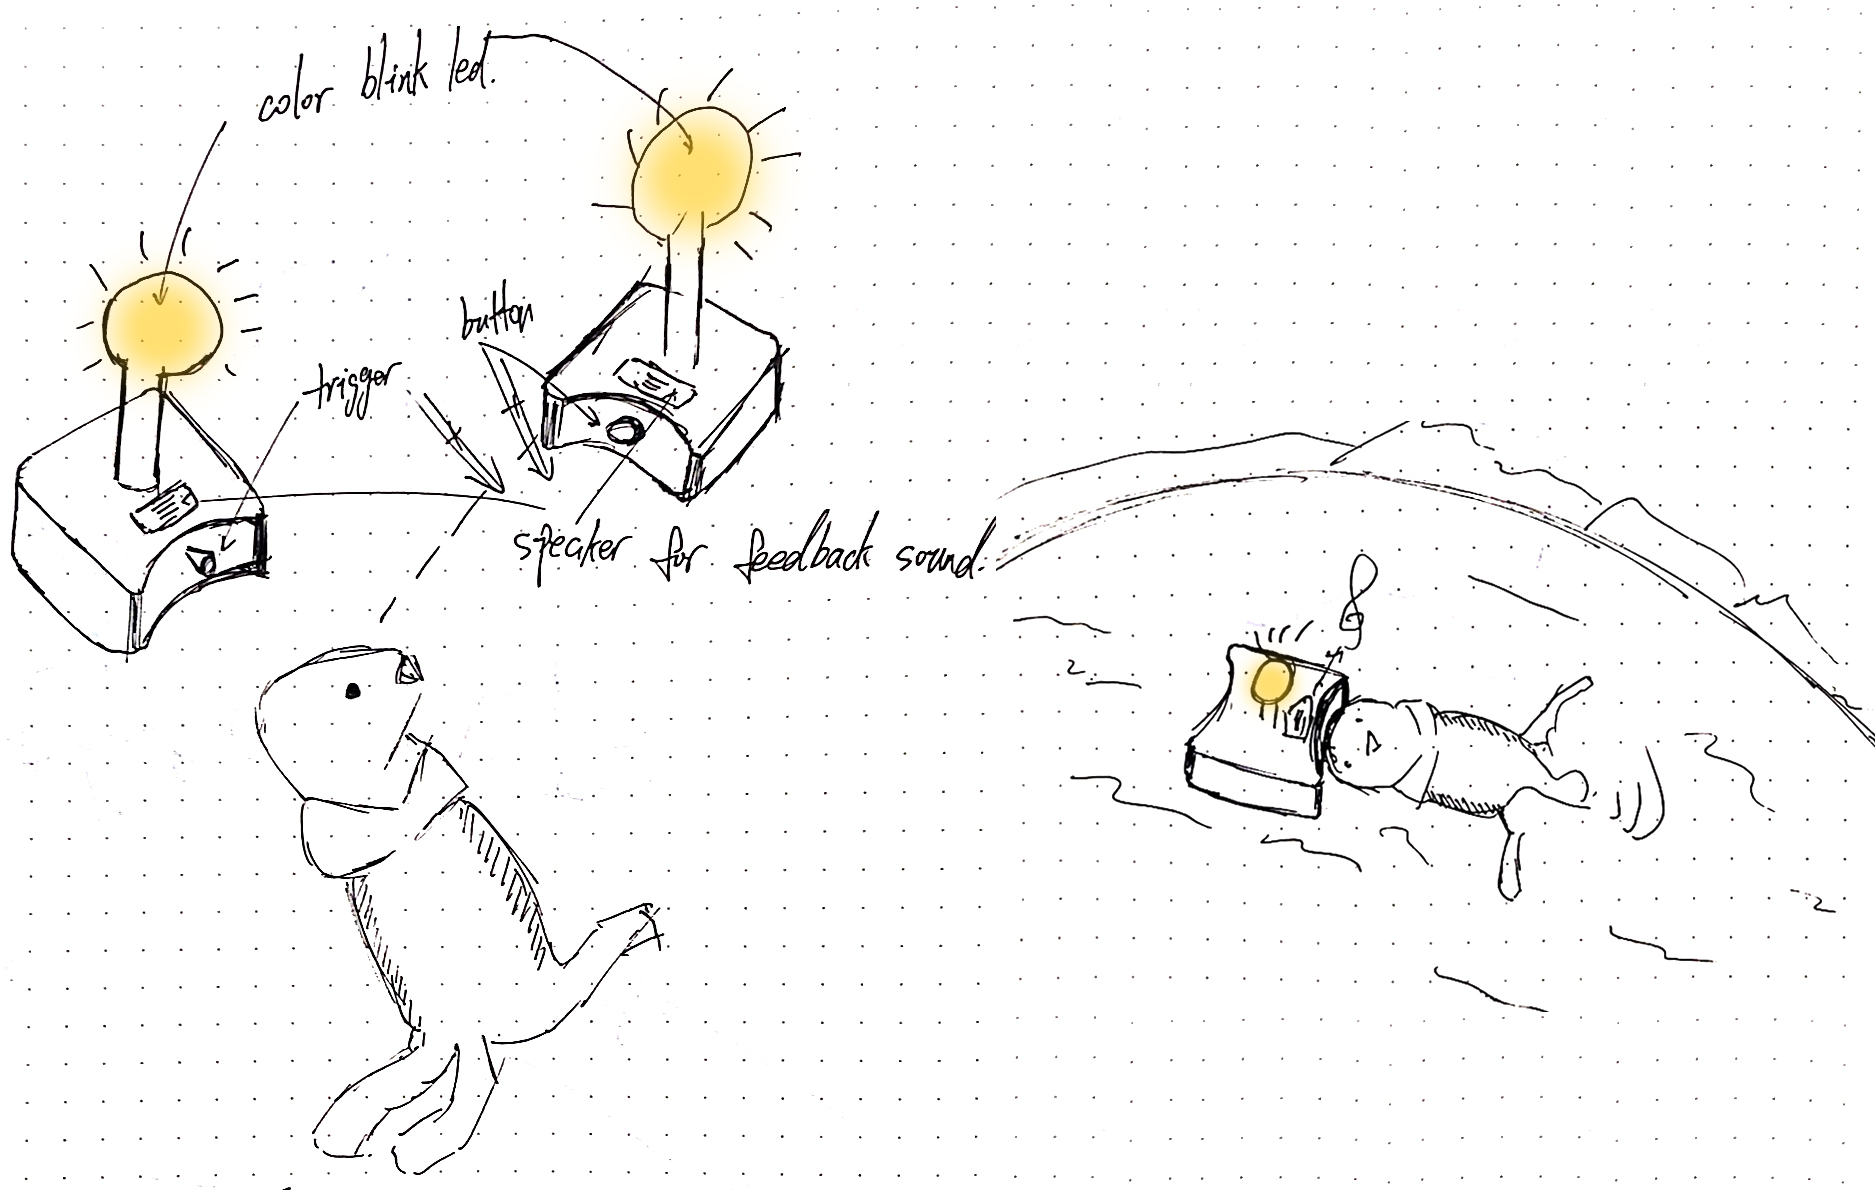 color blink led.
button
trigger
speaker for feedback sound.